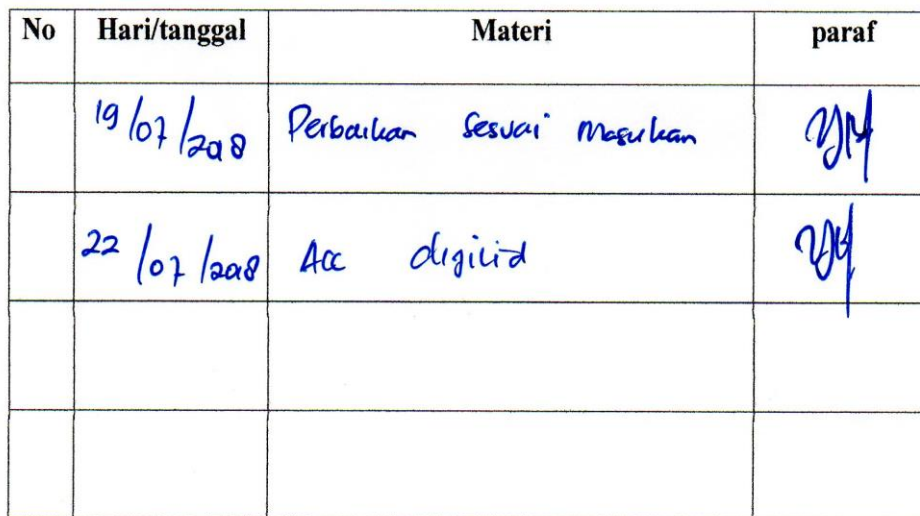 No Hari/tanggal Materi paraf
19/07/2018 Perbaikan sesuai masukan
22/07/2018 Acc digijid